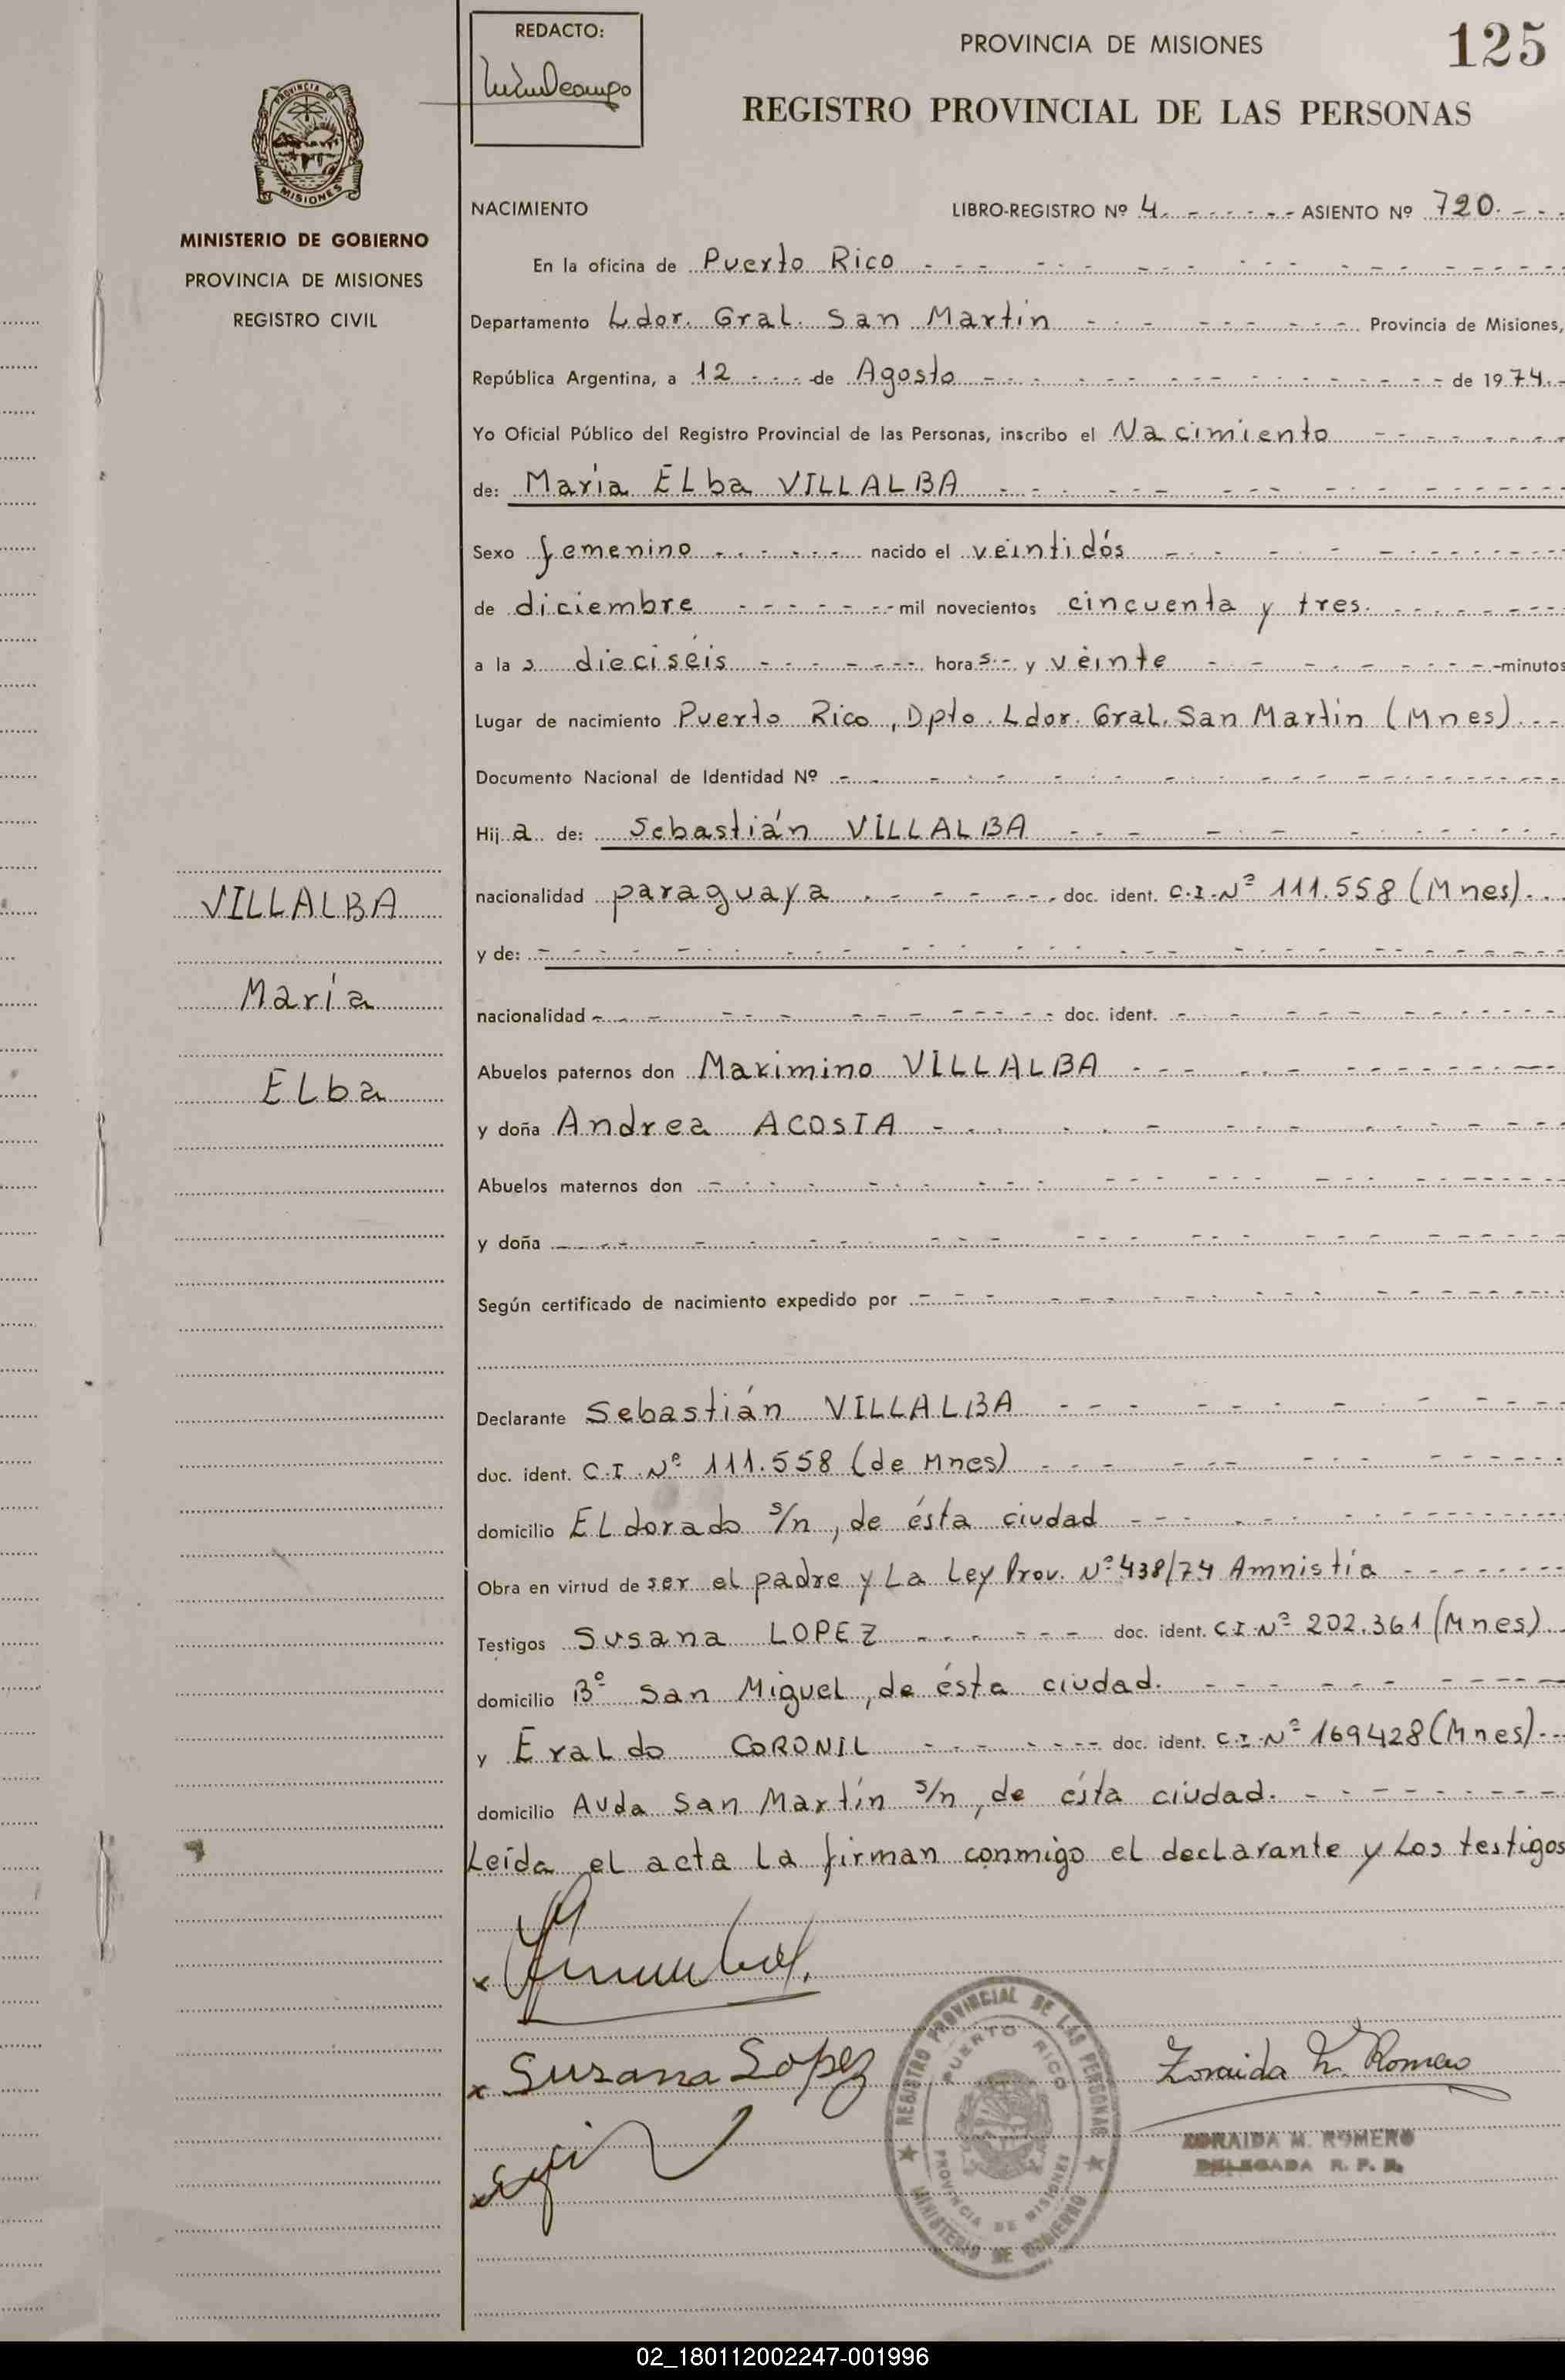 REDACTO:
PROVINCIA DE MISIONES
125
REGISTRO PROVINCIAL DE LAS PERSONAS
PROVINCIA DE
MISIONES
MINISTERIO DE GOBIERNO
PROVINCIA DE MISIONES
REGISTRO CIVIL
NACIMIENTO LIBRO-REGISTRO Nº 4. ASIENTO Nº 720.
En la oficina de Puerto Rico
Departamento Ldor. Gral. San Martín Provincia de Misiones,
República Argentina, a 12 de Agosto de 1974.
Yo Oficial Público del Registro Provincial de las Personas, inscribo el Nacimiento
de: María Elba VILLALBA
Sexo femenino nacido el veintidós
de diciembre mil novecientos cincuenta y tres.
a las dieciséis horas y veinte minutos
Lugar de nacimiento Puerto Rico, Dpto. Ldor. Gral. San Martín (Mnes)
Documento Nacional de Identidad Nº
Hija de: Sebastián VILLALBA
nacionalidad paraguaya doc. ident. C.I. Nº 111.558 (Mnes)
y de:
nacionalidad doc. ident.
Abuelos paternos don Maximino VILLALBA
y doña Andrea ACOSTA
Abuelos maternos don
y doña
Según certificado de nacimiento expedido por
Declarante Sebastián VILLALBA
doc. ident. C.I. Nº 111.558 (de Mnes)
domicilio ELdorado s/n, de ésta ciudad
Obra en virtud de ser el padre y La Ley Prov. Nº 438/74 Amnistía
Testigos Susana LOPEZ doc. ident. C.I. Nº 202.361 (Mnes)
domicilio Bº San Miguel, de ésta ciudad.
y Eraldo CORONIL doc. ident. C.I. Nº 169428 (Mnes)
domicilio Avda San Martín s/n, de ésta ciudad.
Leída el acta la firman conmigo el declarante y Los testigos
VILLALBA
María
ELba
x
x Susana Lopez
x
REGISTRO PROVINCIAL DE LAS PERSONAS
PUERTO RICO
PROVINCIA DE MISIONES
MINISTERIO DE GOBIERNO
Zoraida M. Romero
ZORAIDA M. ROMERO
DELEGADA R. P. P.
02_180112002247-001996